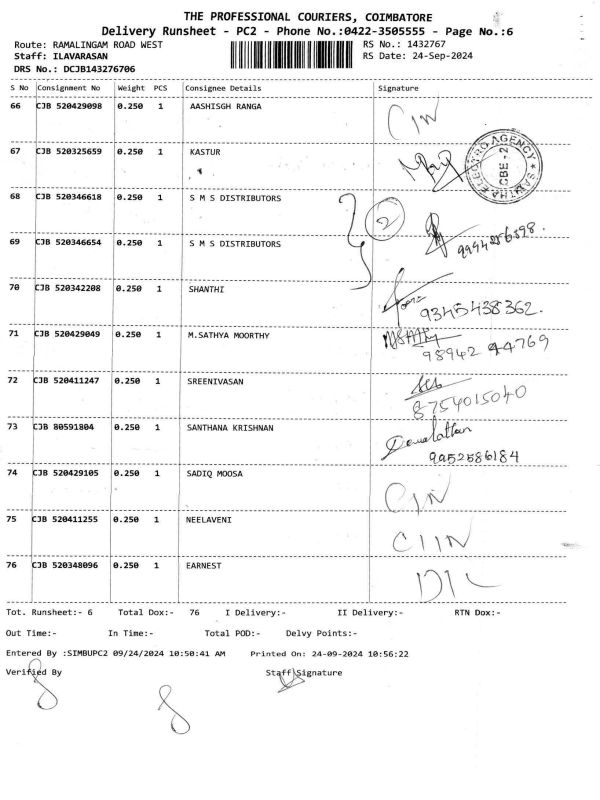 THE PROFESSIONAL COURIERS, COIMBATORE
Delivery Runsheet - PC2 - Phone No.:0422-3505555 - Page No.:6
Route: RAMALINGAM ROAD WEST RS No.: 1432767
Staff: ILAVARASAN RS Date: 24-Sep-2024
DRS No.: DCJB143276706
S No Consignment No Weight PCS Consignee Details Signature
66 CJB 520429098 0.250 1 AASHISGH RANGA
67 CJB 520325659 0.250 1 KASTUR
AGENCY CBE-2
68 CJB 520346618 0.250 1 S M S DISTRIBUTORS
2
69 CJB 520346654 0.250 1 S M S DISTRIBUTORS
70 CJB 520342208 0.250 1 SHANTHI
9345438362.
71 CJB 520429049 0.250 1 M.SATHYA MOORTHY
98942 44769
72 CJB 520411247 0.250 1 SREENIVASAN
8754015040
73 CJB 80591804 0.250 1 SANTHANA KRISHNAN
9952586184
74 CJB 520429105 0.250 1 SADIQ MOOSA
75 CJB 520411255 0.250 1 NEELAVENI
76 CJB 520348096 0.250 1 EARNEST
Tot. Runsheet:- 6 Total Dox:- 76 I Delivery:- II Delivery:- RTN Dox:-
Out Time:- In Time:- Total POD:- Delvy Points:-
Entered By :SIMBUPC2 09/24/2024 10:50:41 AM Printed On: 24-09-2024 10:56:22
Verified By Staff Signature